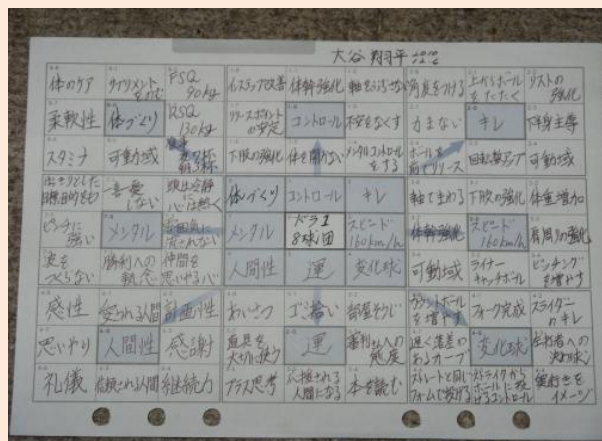 大谷翔平 2010 12.6
体のケア サプリメントをのむ FSQ 90kg インステップ改善 体幹強化 軸をぶらさない 角度をつける 上からボールをたたく リストの強化
柔軟性 体づくり RSQ 130kg リリースポイントの安定 コントロール 不安をなくす 力まない キレ 下半身主導
スタミナ 可動域 食事 夜7杯 朝3杯 下肢の強化 体を開かない メンタルコントロールをする ボールを前でリリース 回転数アップ 可動域
はっきりとした目標、目的をもつ 一喜一憂しない 頭は冷静に心は熱く 体づくり コントロール キレ 軸でまわる 下肢の強化 体重増加
ピンチに強い メンタル 雰囲気に流されない メンタル ドラ1 8球団 スピード 160km/h 体幹強化 スピード 160km/h 肩周りの強化
波をつくらない 勝利への執念 仲間を思いやる心 人間性 運 変化球 可動域 ライナーキャッチボール ピッチングを増やす
感性 愛される人間 計画性 あいさつ ゴミ拾い 部屋そうじ カウントボールを増やす フォーク完成 スライダーのキレ
思いやり 人間性 感謝 道具を大切に使う 運 審判さんへの態度 遅く落差のあるカーブ 変化球 左打者への決め球
礼儀 信頼される人間 継続力 プラス思考 応援される人間になる 本を読む ストレートと同じフォームで投げる ストライクからボールに投げるコントロール 奥行きをイメージ